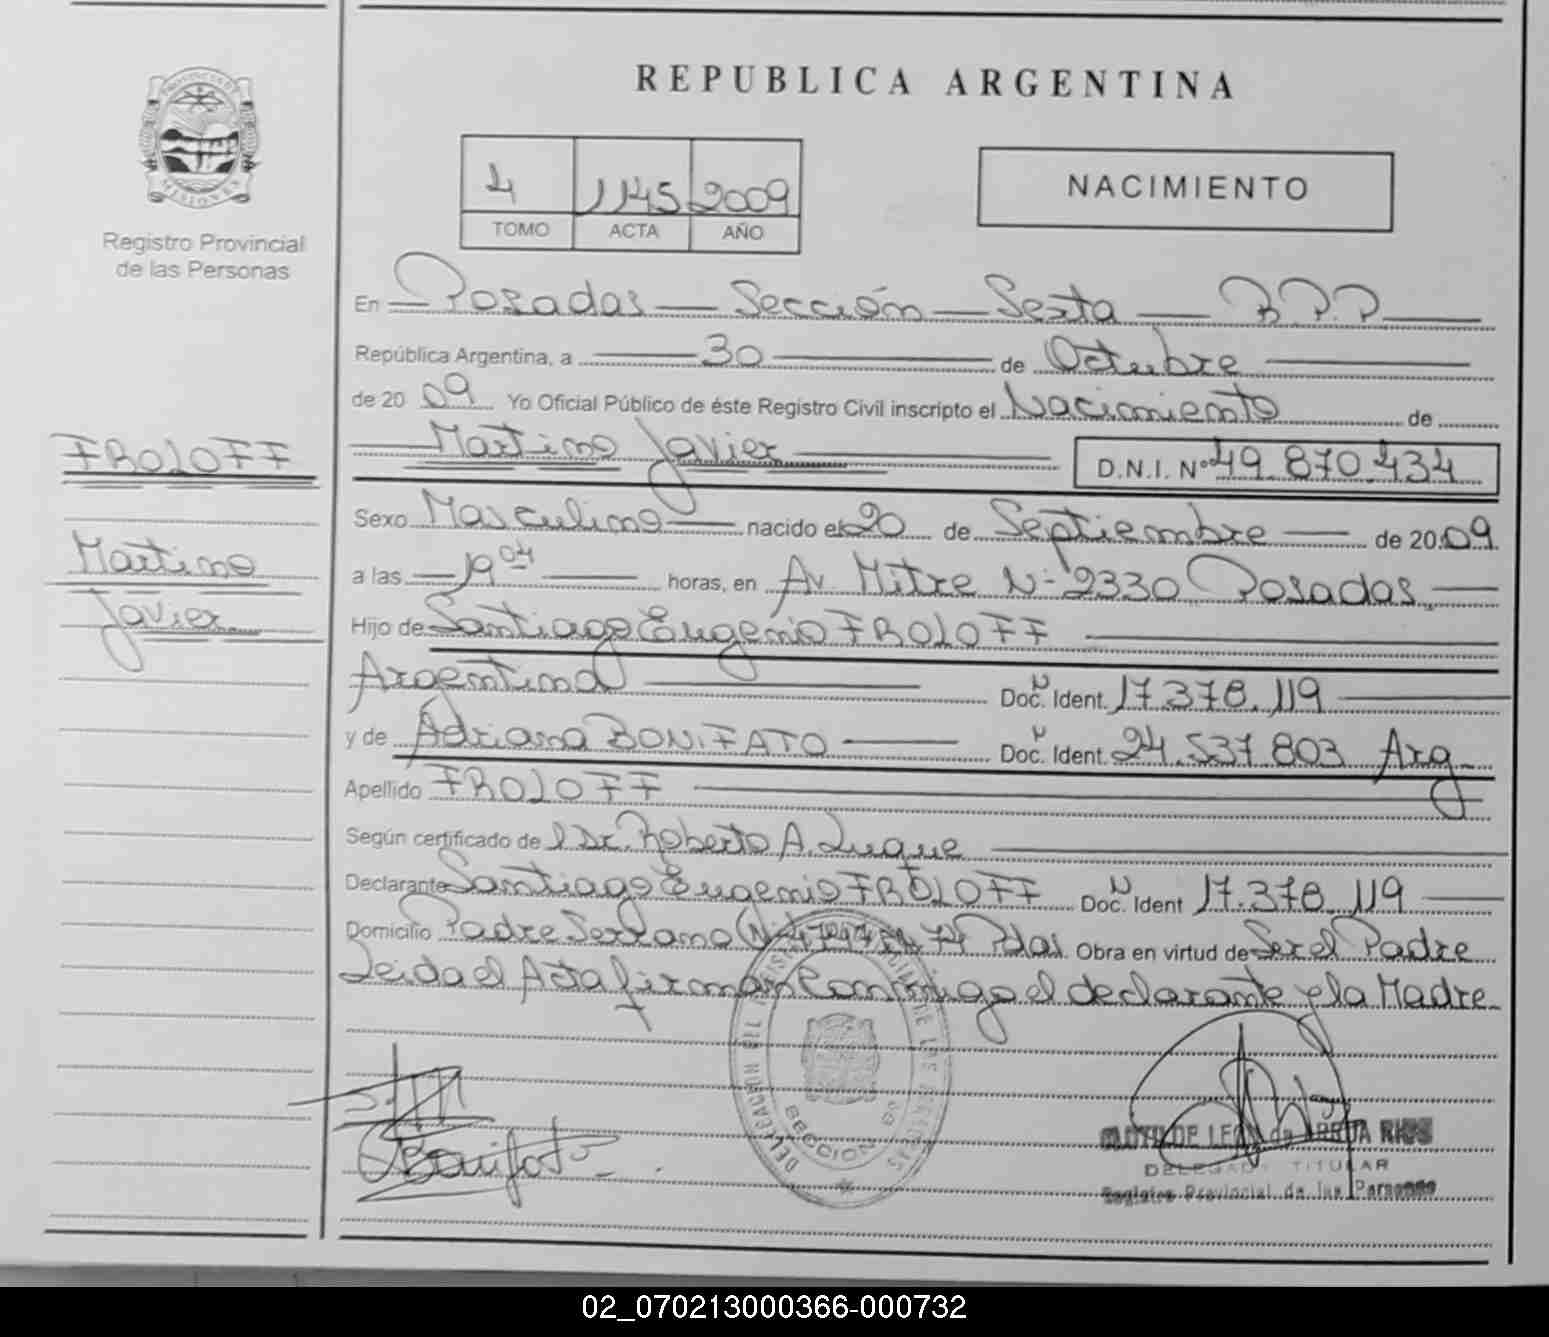 REPUBLICA ARGENTINA
PROVINCIA DE
MISIONES
Registro Provincial
de las Personas
4 1145 2009
TOMO ACTA AÑO
NACIMIENTO
En Posadas — Sección — Sexta — B P.P
República Argentina, a 30 de Octubre
de 2009 Yo Oficial Público de éste Registro Civil inscripto el Nacimiento de
FROLOFF
Martino Javier D.N.I. Nº 49.870.434
Sexo Masculino nacido el 20 de Septiembre de 2009
Martino
a las 19 04 horas, en Av. Mitre Nº 2330 Posadas
Javier
Hijo de Santiago Eugenio FROLOFF
Argentino Doc. Ident. 17.378.119
y de Adriana BONIFATO Doc. Ident. 24.537.803 Arg
Apellido FROLOFF
Según certificado de l Dr. Roberto A. Luque
Declarante Santiago Eugenio FROLOFF Doc. Ident 17.378.119
Domicilio Padre Serrano Pdas. Obra en virtud de Ser el Padre
Leida el Acta firman Conmigo el declarante y la Madre
Bonifato
SECCION 6a
DE LEON de ARRUA RIOS
DELEGADA TITULAR
Registro Provincial de las Personas
02_070213000366-000732